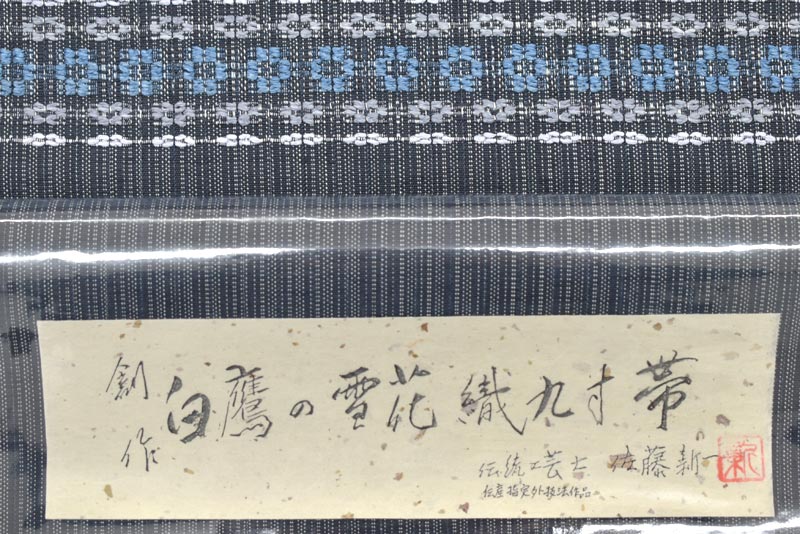 創作
白鷹の雪花織九寸帯
伝統工芸士 佐藤新一
伝産指定外技法作品
新